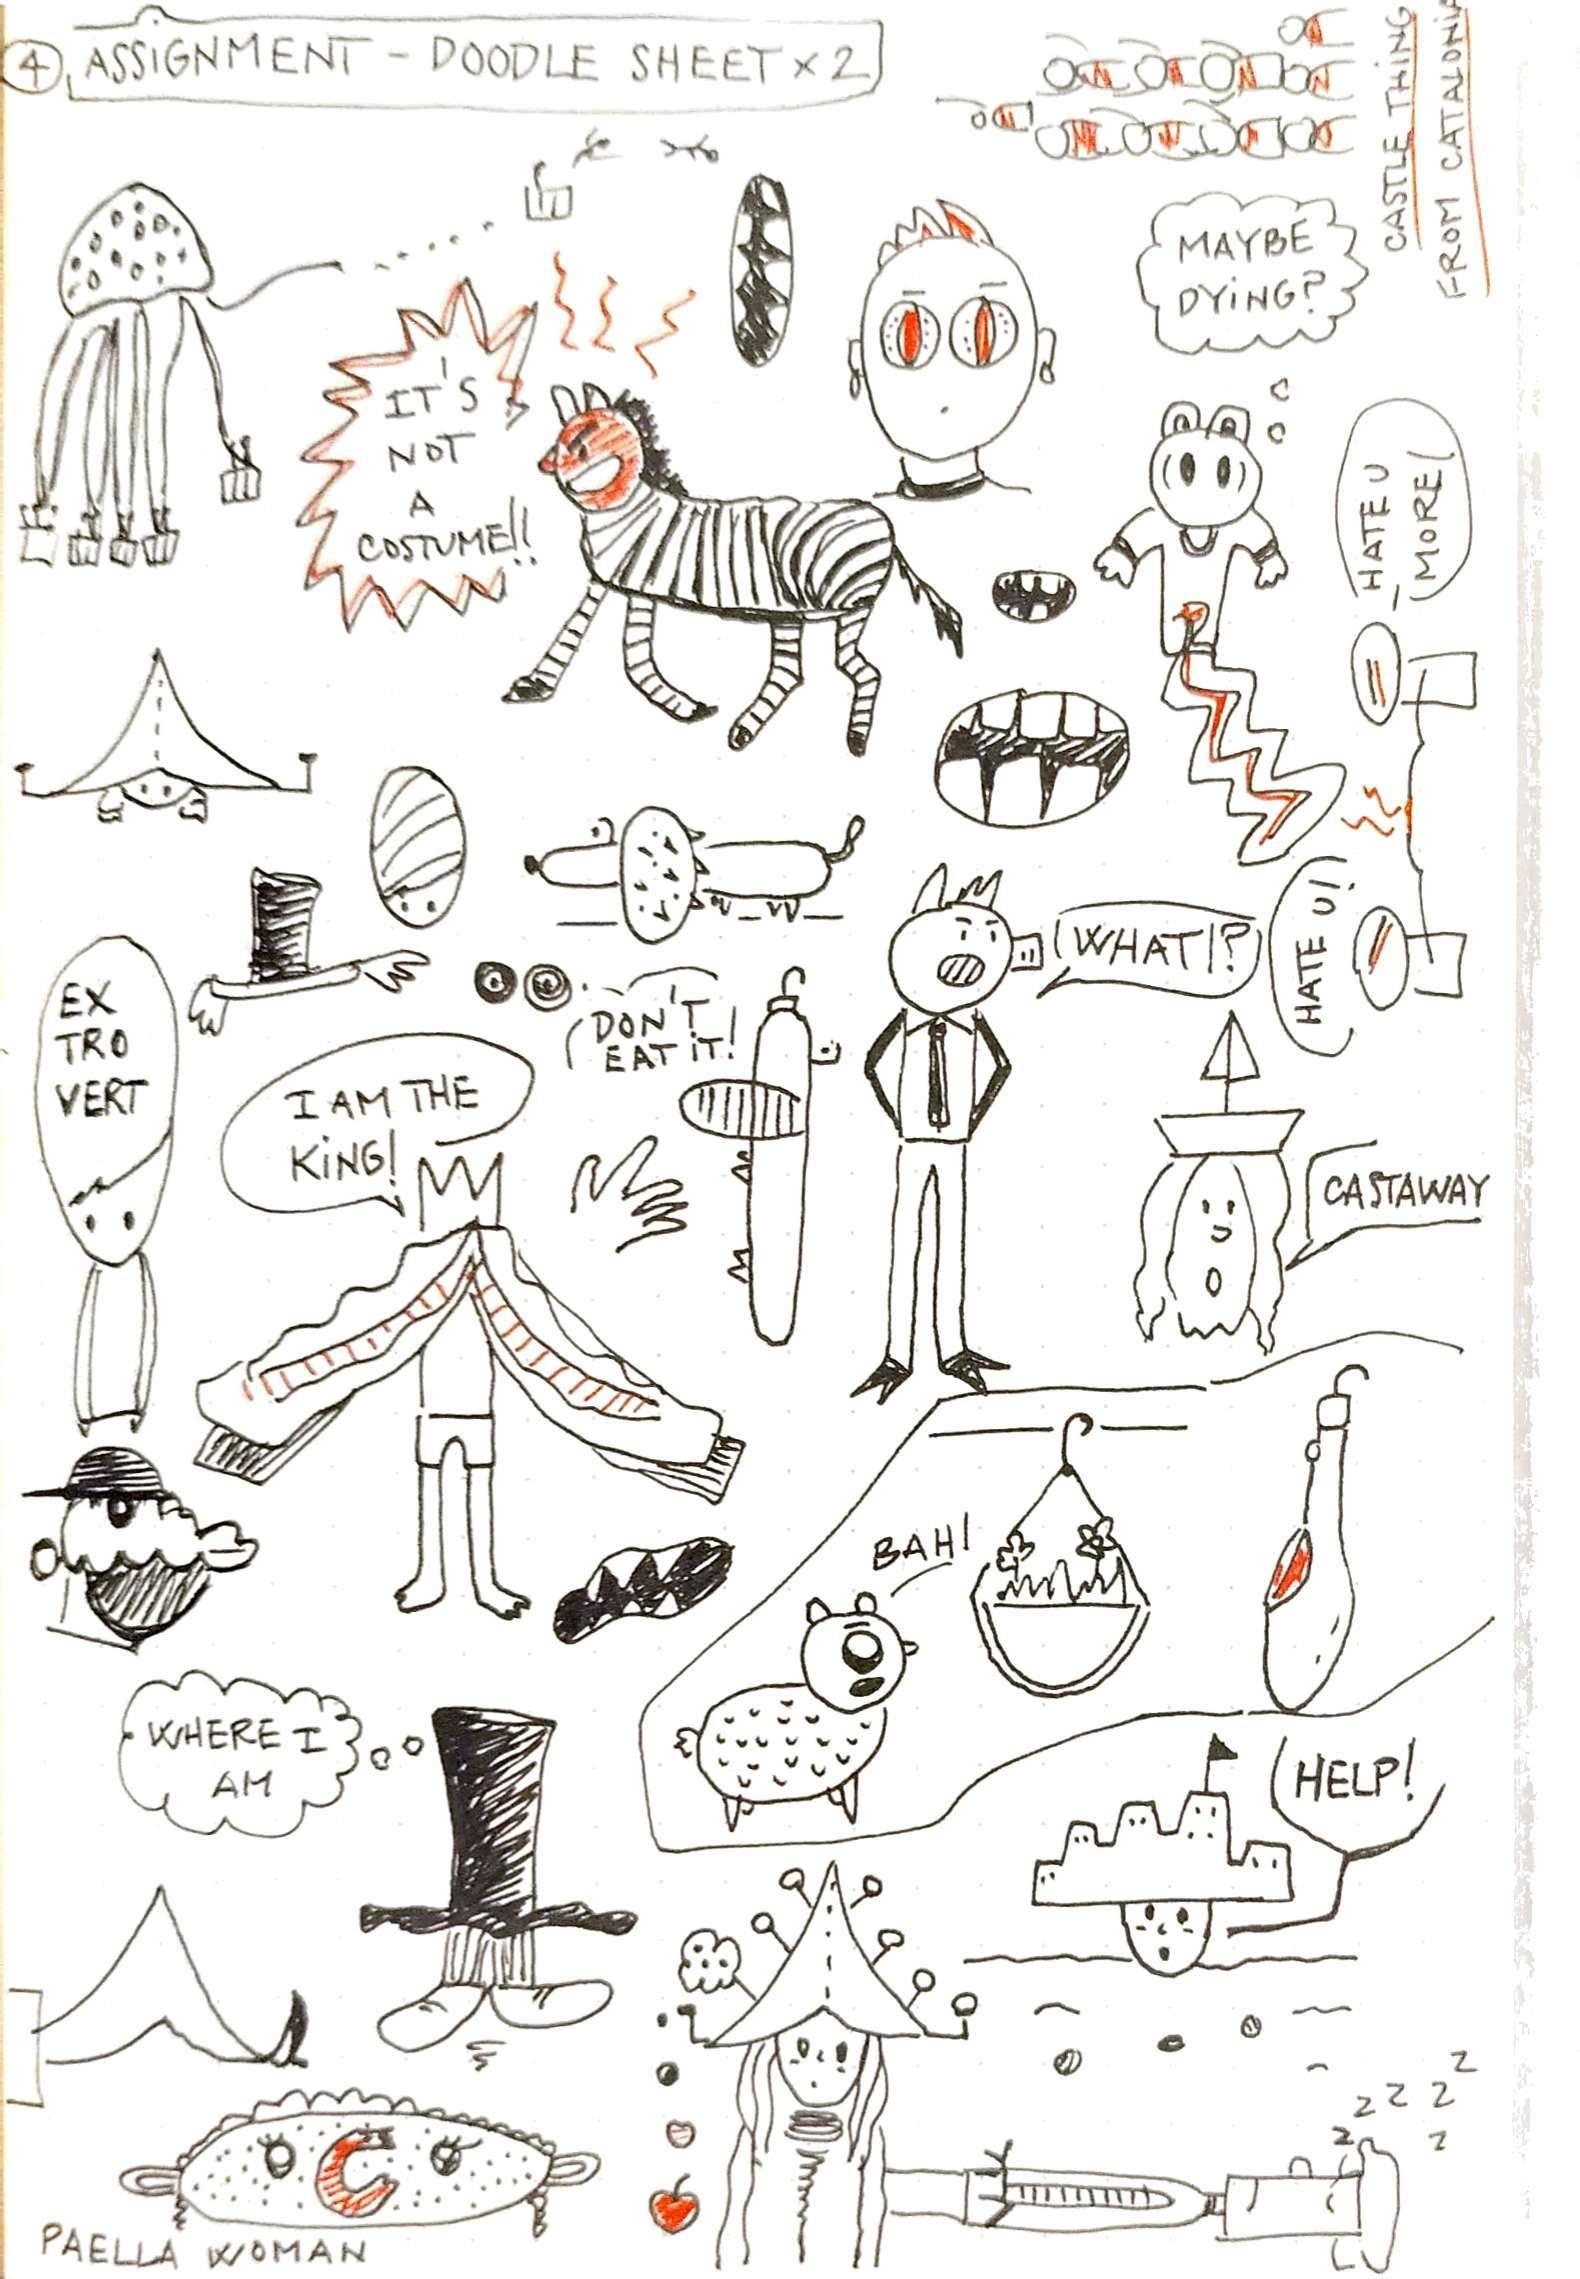 4 ASSIGNMENT - DOODLE SHEET x 2
CASTLE THING
FROM CATALONIA
MAYBE
DYING?
IT'S
NOT
A
COSTUME!!
HATE U
MORE!
HATE U!
WHAT!?
DON'T
EAT IT!
EX
TRO
VERT
I AM THE
KING!
CASTAWAY
BAH!
WHERE I
AM
HELP!
z z z z
z z
PAELLA WOMAN